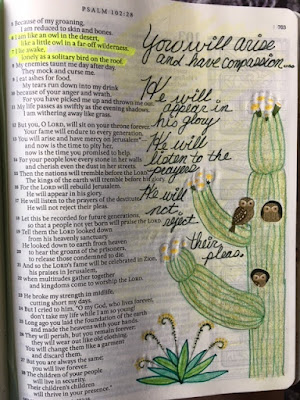 PSALM 102:28
703
5 Because of my groaning,
I am reduced to skin and bones.
6 I am like an owl in the desert,
like a little owl in a far-off wilderness.
7 I lie awake,
lonely as a solitary bird on the roof.
8 My enemies taunt me day after day.
They mock and curse me.
9 I eat ashes for food.
My tears run down into my drink
10 because of your anger and wrath.
For you have picked me up and thrown me out.
11 My life passes as swiftly as the evening shadows.
I am withering away like grass.
12 But you, O LORD, will sit on your throne forever.
Your fame will endure to every generation.
13 You will arise and have mercy on Jerusalem
and now is the time to pity her,
now is the time you promised to help.
14 For your people love every stone in her walls
and cherish even the dust in her streets.
15 Then the nations will tremble before the LORD.
The kings of the earth will tremble before his glory.
16 For the LORD will rebuild Jerusalem.
He will appear in his glory.
17 He will listen to the prayers of the destitute.
He will not reject their pleas.
18 Let this be recorded for future generations,
so that a people not yet born will praise the LORD.
19 Tell them the LORD looked down
from his heavenly sanctuary.
He looked down to earth from heaven
20 to hear the groans of the prisoners,
to release those condemned to die.
21 And so the LORD's fame will be celebrated in Zion,
his praises in Jerusalem,
22 when multitudes gather together
and kingdoms come to worship the LORD.
23 He broke my strength in midlife,
cutting short my days.
24 But I cried to him, "O my God, who lives forever,
don't take my life while I am so young!
25 Long ago you laid the foundation of the earth
and made the heavens with your hands.
26 They will perish, but you remain forever;
they will wear out like old clothing.
You will change them like a garment
and discard them.
27 But you are always the same;
you will live forever.
28 The children of your people
will live in security.
Their children's children
will thrive in your presence."
You will arise
and have compassion
He will
appear in
his glory
He will
listen to the
prayers
He will
not
reject
their
pleas.